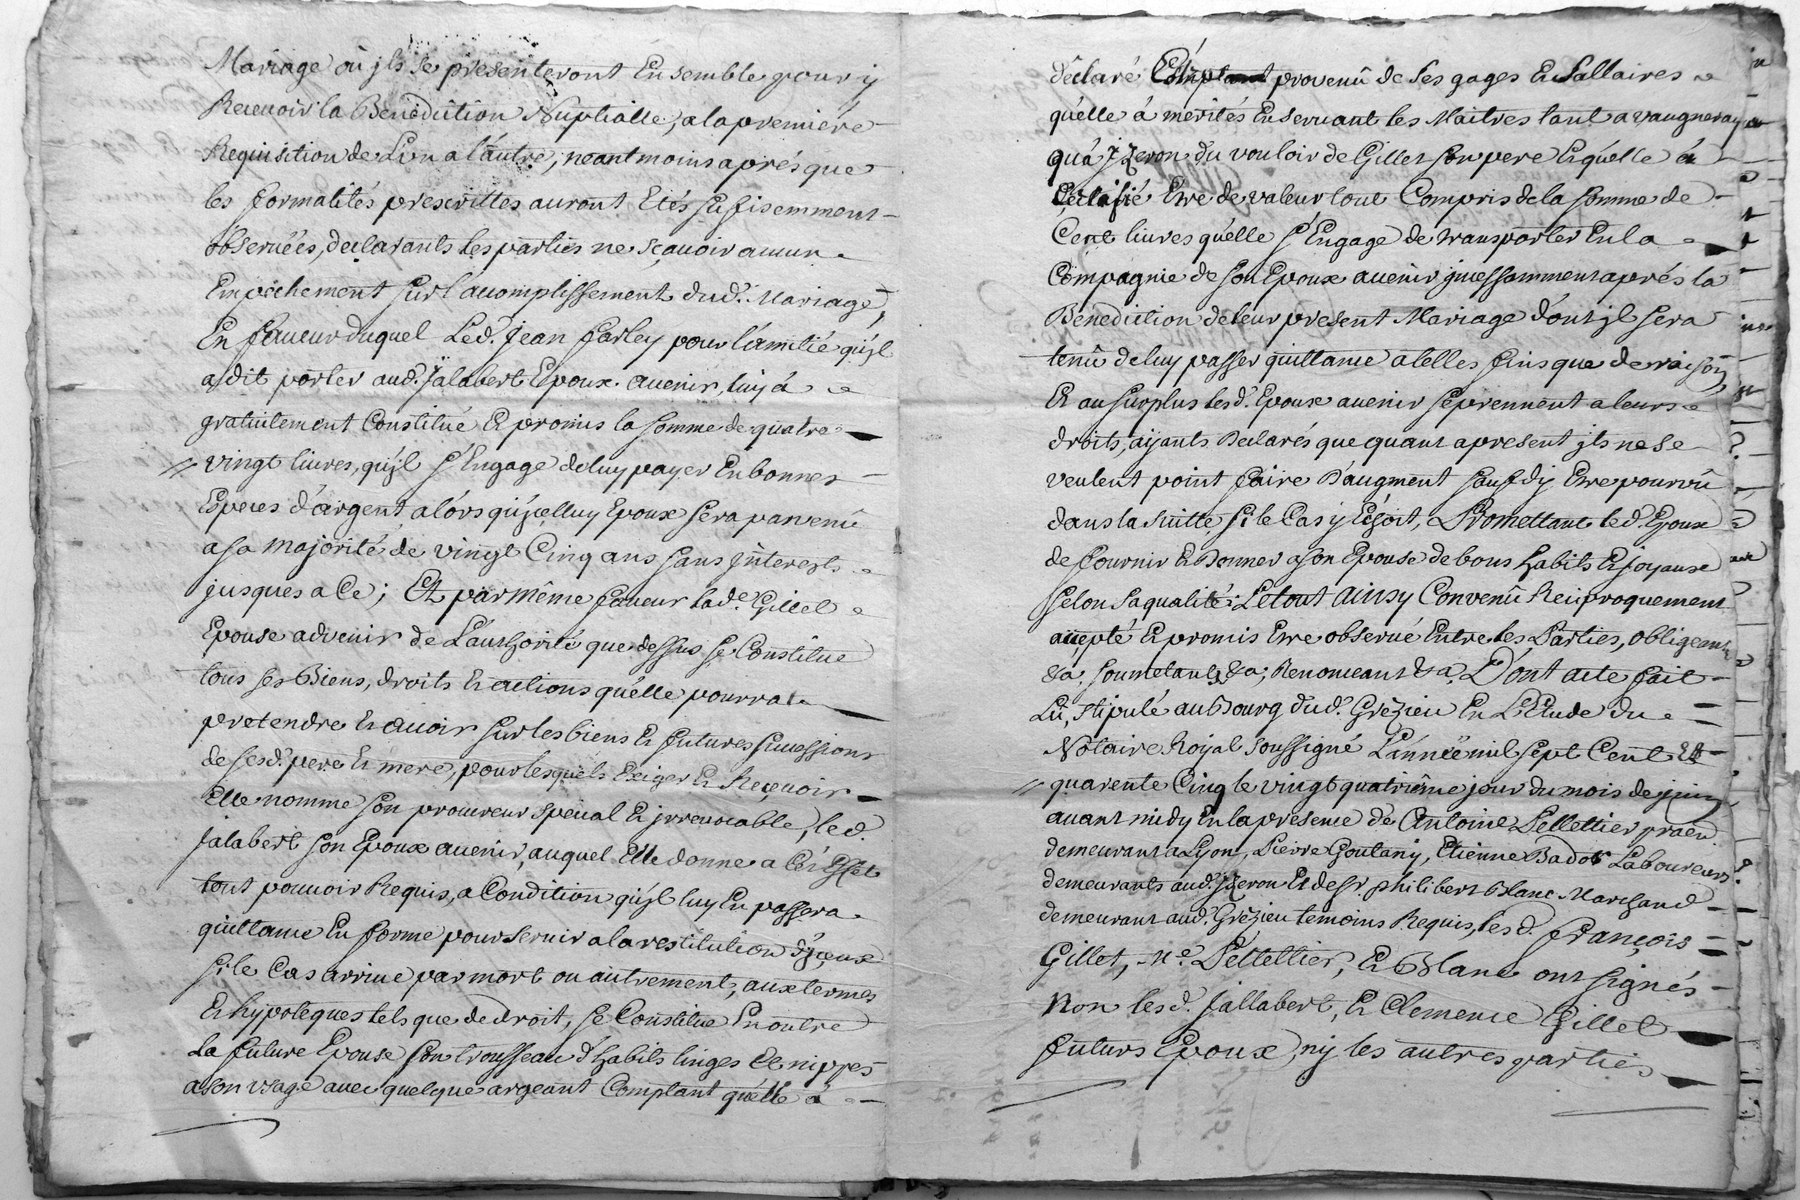 Mariage où jls se présenteront Ensemble pour ÿ
Recevoir la Benediction Nuptialle, a la premiére
Requisition de L'un a l'autre, neantmoins aprés que
les formalités prescrittes auront Etés sufisemment
observées, declarants les parties ne sçavoir aucun
Empêchement sur l'acomplissement dud. Mariage,
En faveur duquel Led. Jean farley pour l'amitié qu'jl
a dit porter aud. Jalabert Epoux avenir, luy á
gratuitement Constitué Et promis la somme de quatre
vingt livres, qu'jl s'Engage de luy payer En bonnes
Especes d'argent alórs qu'jcelluy Epoux sera parvenû
a sa majorité de vingt Cinq ans sans jnterests
jusques a Ce; Et par même faveur lad.e Gillet
Epouse advenir de L'authorité que dessus se Constitue
tous ses Biens, droits Et actions qu'elle pourra
pretendre Et avoir sur les biens Et futures successions
de sesd. pere Et mere, pour lesquels Exiger Et Reçevoir
Elle nomme son procureur special Et jrrevocable, led.
Jalabert son Epoux avenir, auquel Elle donne a Cét Effet
tout pouvoir Requis, a Condition qu'jl luy En passera
quittance En forme pour servir a la restitution d'jceux
si le Cas arrive par mort ou autrement, aux termes
Et hypoteques tels que de droit, se Constitue En outre
La future Epouse son trousseau d'habits linges Et nippes
a son usage avec quelque argeant Comptant qu'elle á
déclaré provenû de ses gages Et sallaires
qu'elle á mérités En servant les Maitres tant a vaugneray
qu'á Jzeron du vouloir de Gillet son pere Et qu'elle á
Certifié Etre de valeur tout Compris de la somme de
Cent livres qu'elle s'Engage de transporter En la
Compagnie de son Epoux avenir jncessamment aprés la
Benediction de leur present Mariage dont jl sera
tenû de luy passer quittance a telles fins que de raison,
Et au surplus lesd. Epoux avenir se prennent a leurs
droits, aÿants Declarés que quant a present jls ne se
veulent point faire D'augment sauf d'ÿ Etre pourvû
dans la suitte si le Cas y Echoit, Promettant led. Epoux
de fournir Et Donner a son Epouse de bons habits Et joyaux
selon sa qualité: Le tout ainsy Convenû Reciproquement
accepté Et promis Etre observé Entre les Parties, obligeant
&a. soumetant &a; Renonceant &a. D'ont acte fait
Lû, stipulé au Bourg dud. Grézieu En L'Etude du
Notaire Royal soussigné L'année mil sept Cent
quarente Cinq le vingt quatriême jour du mois de juin
avant midy En la présence de Antoine Pelletier praen.
demeurant a Lyon, Pierre Goutany, Etienne Badot Laboureurs
demeurants aud. Jzeron Et de sr. philibert Blanc Marchand
demeurant aud. Grézieu temoins Requis, lesd. François
Gillet, Me. Pelletier, Et Blanc ont signés
Non lesd. Jallabert, Et Clemence Gillet
futurs Epoux, nÿ les autres parties